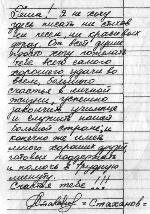 Лёша! Я не хочу
здесь писать ни стихов
ни песен, ни красивых
фраз. От всей души
просто хочу пожелать
тебе всего самого
хорошего удачи во
всём, большого
счастья в личной
жизни, успешно
закончить училище
и служить нашей
большой стране, и
конечно же иметь
много хороших друзей
готовых поддержать
и помочь в трудную
минуту.
Счастья тебе!!!